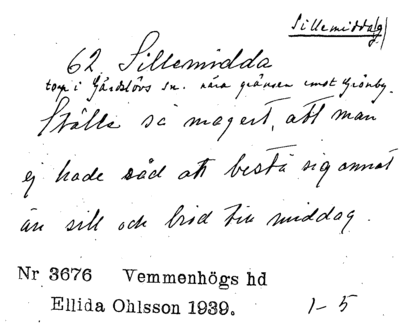 Sillemidda/g/
62, Sillemidda
torp i Gärdslövs sn. nära gränsen mot Grönby.
Ställe så magert, att man
ej hade råd att bestå sig annat
än sill och bröd till middag.
Nr 3676 Vemmenhögs hd
Ellida Ohlsson 1939. 1-5